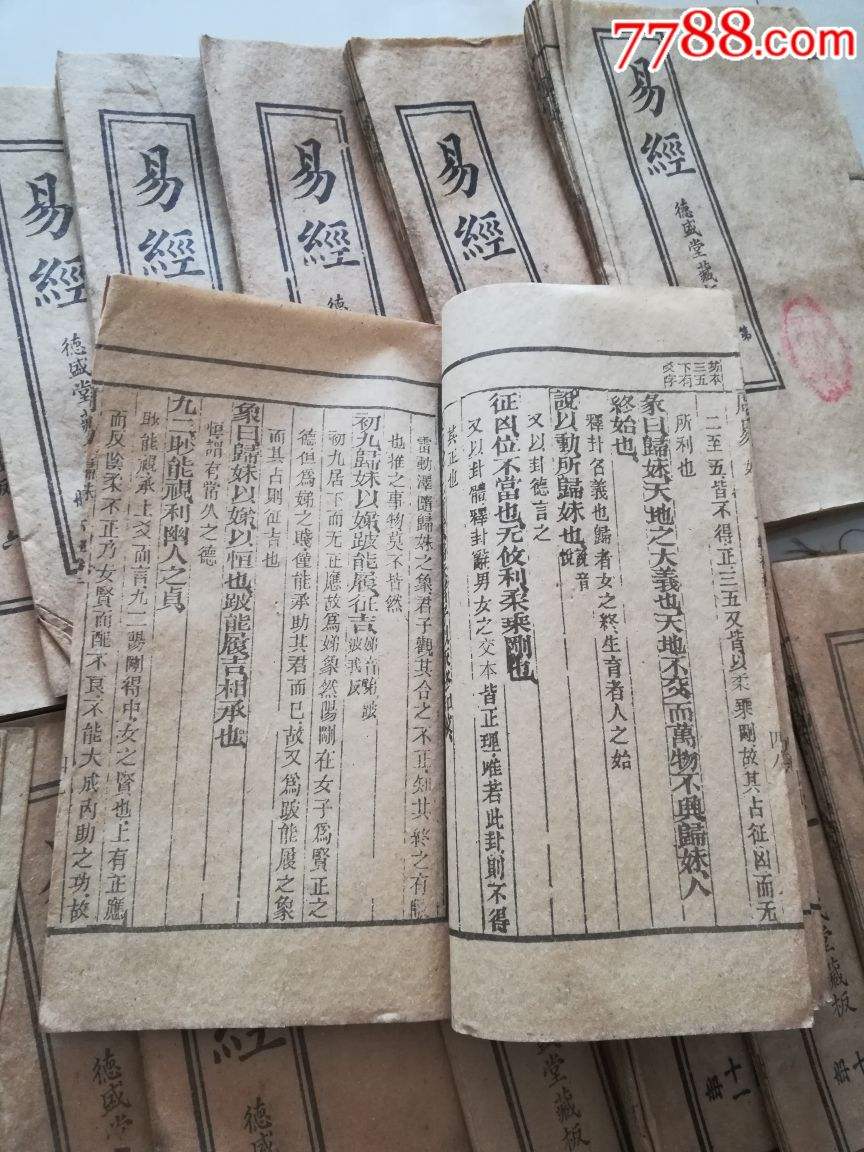 7788.com
易經
德盛堂藏板
第
易經
易經
德
易經
德
易經
易經
德盛堂藏
二至五皆不得正三五又皆以柔乘剛故其占征凶而无
所利也
彖曰歸妹天地之大義也天地不交而萬物不興歸妹人
終始也
釋卦名義也歸者女之終生育者人之始
說以動所歸妹也說音
又以卦德言之
征凶位不當也无攸利柔乘剛也
又以卦體釋卦辭男女之交本皆正理唯若此卦則不得
其正也
雷動澤隨歸妹之象君子觀其合之不正知其終之有
也推之事物莫不皆然
初九歸妹以娣跛能履征吉
初九居下而无正應故爲娣象然陽剛在女子爲賢正之
德但爲娣之賤僅能承助其君而已故又爲跛能履之象
而其占則征吉也
象曰歸妹以娣以恒也跛能履吉相承也
恒謂有常久之德
九二眇能視利幽人之貞
眇能視承上爻而言九二陽剛得中女之賢也上有正應
而反陰柔不正乃女賢而配不良不能大成內助之功故
經
德盛堂
德盛
堂藏板
十一册
堂藏板
十
册